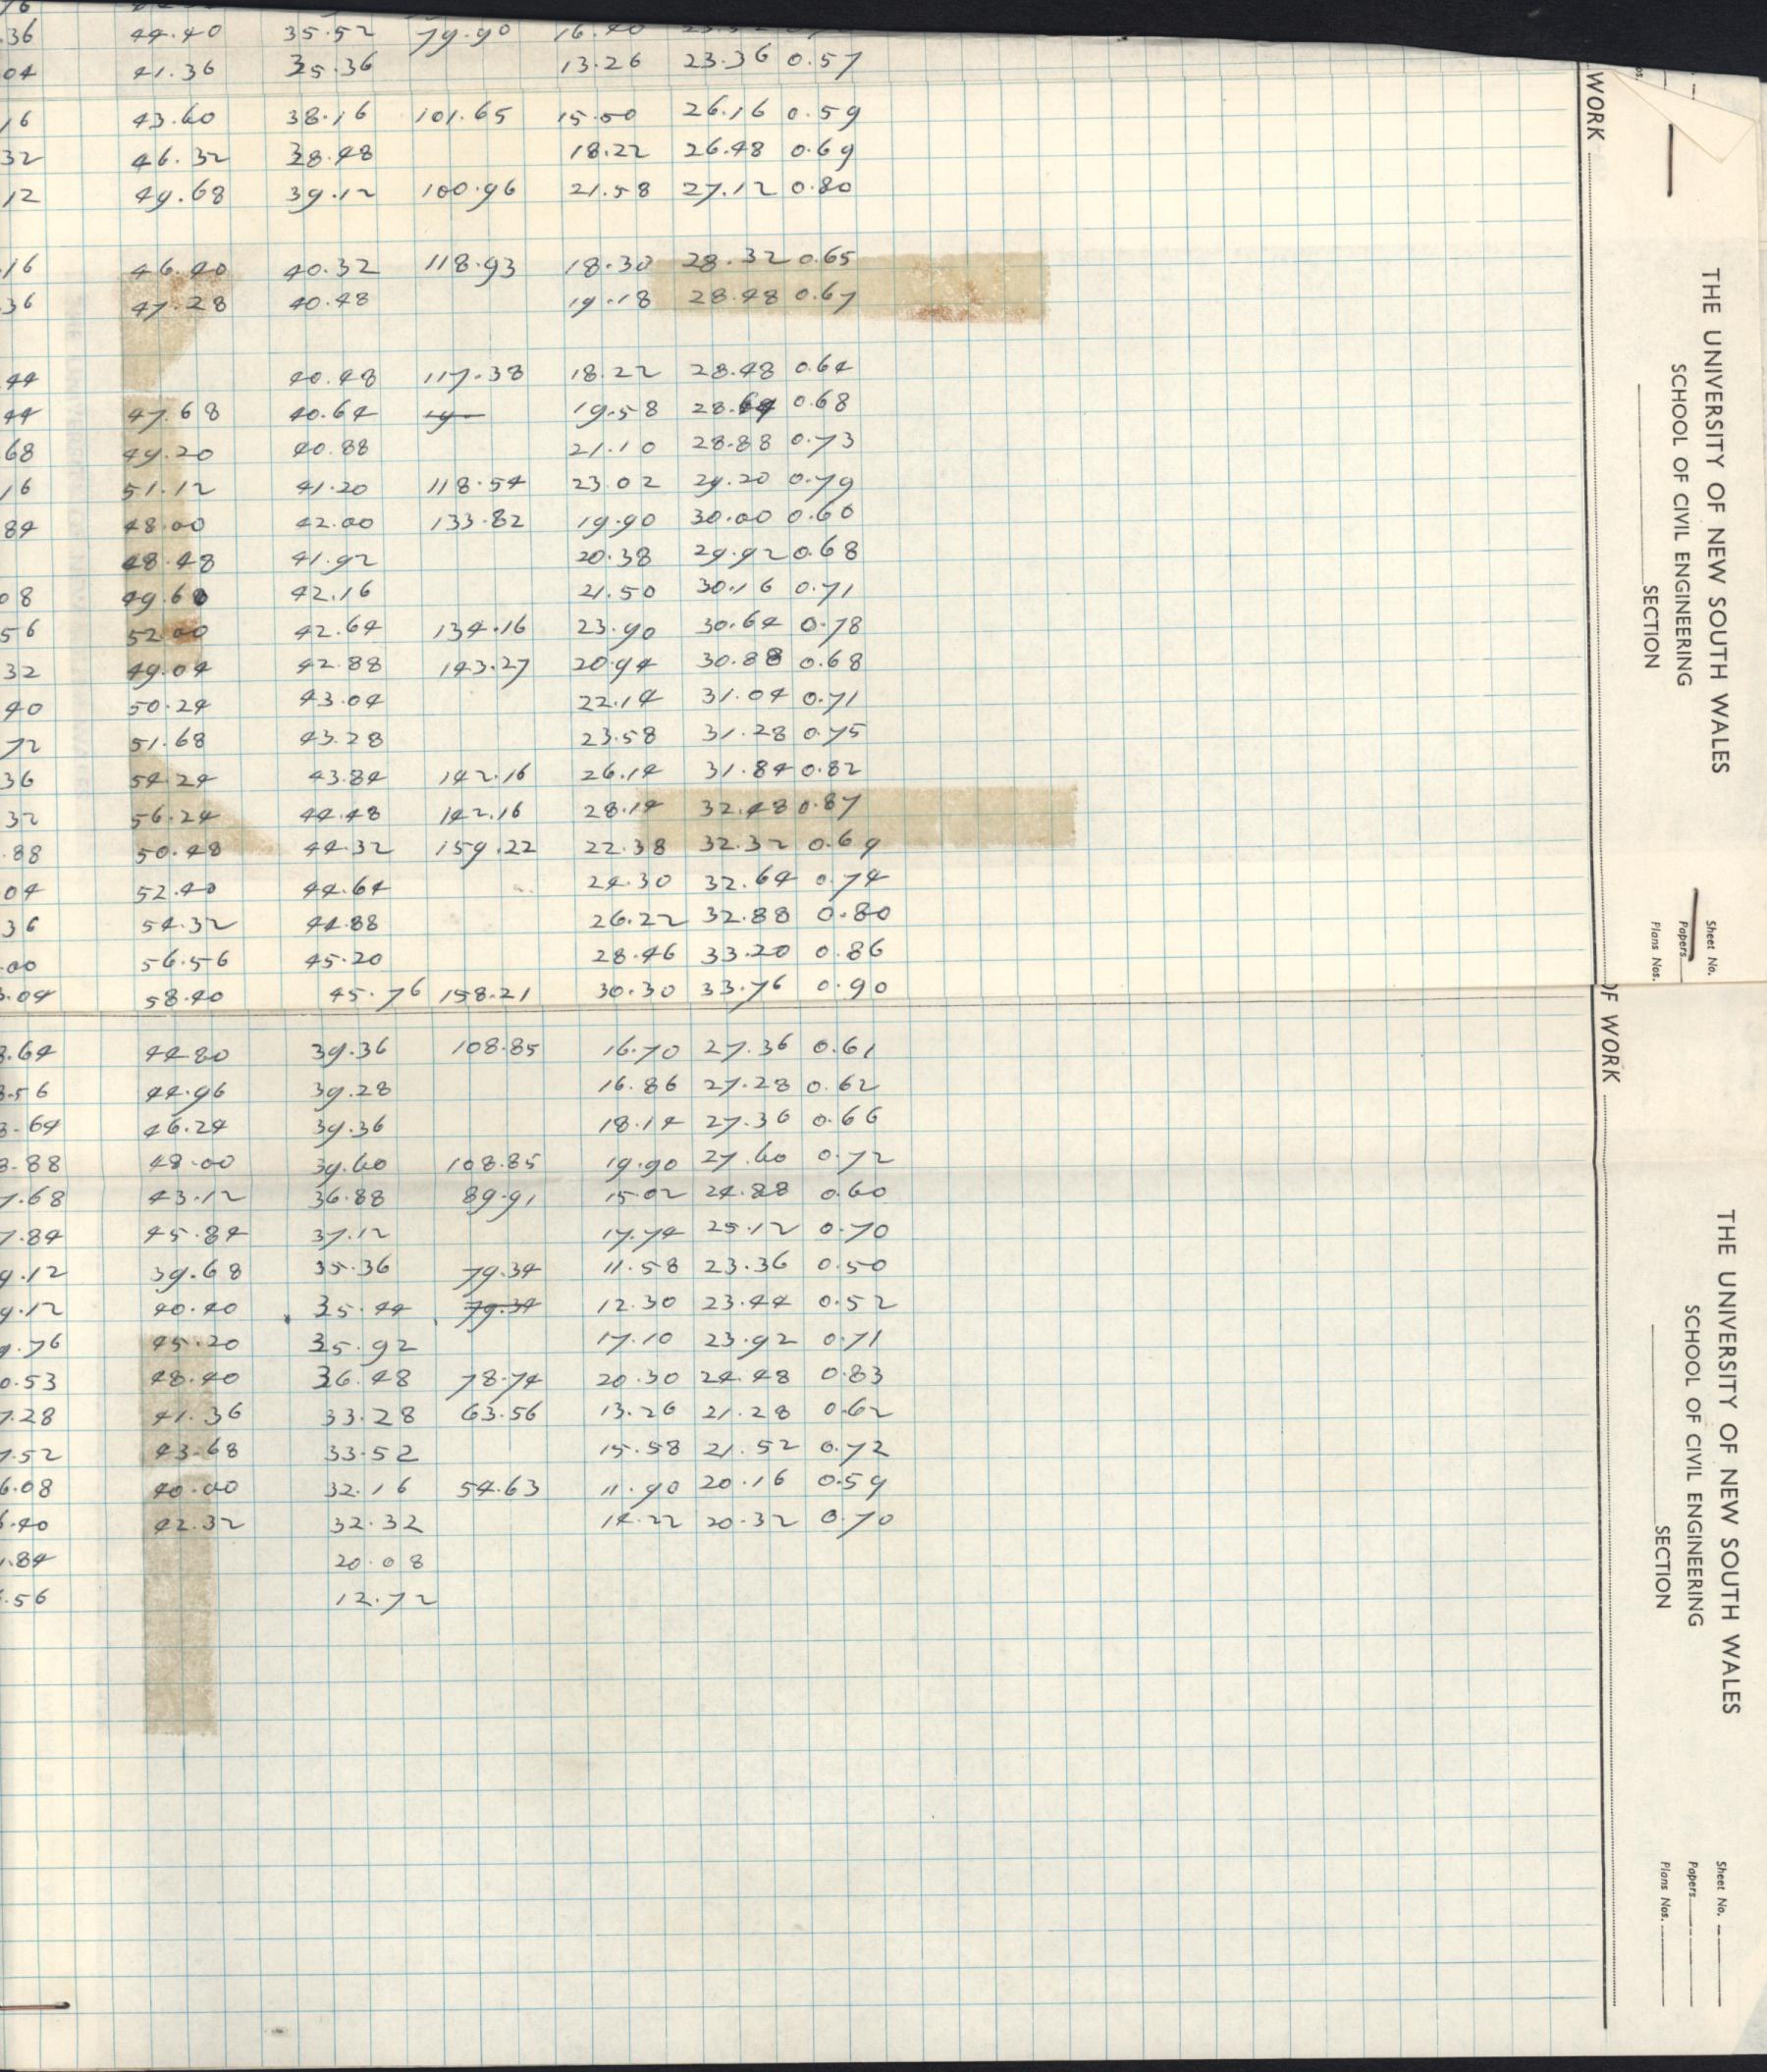 36 44.40 35.52 79.90 16.40
04 41.36 35.36 13.26 23.36 0.57
16 43.60 38.16 101.65 15.50 26.16 0.59
32 46.32 38.48 18.22 26.48 0.69
12 49.68 39.12 100.96 21.58 27.12 0.80
16 46.40 40.32 118.93 18.30 28.32 0.65
36 47.28 40.48 19.18 28.48 0.67
44 40.48 117.38 18.22 28.48 0.64
44 47.68 40.64 19.58 28.64 0.68
68 49.20 40.88 21.10 28.88 0.73
16 51.12 41.20 118.54 23.02 29.20 0.79
84 48.00 42.00 133.82 19.90 30.00 0.60
48.48 41.92 20.38 29.92 0.68
08 49.60 42.16 21.50 30.16 0.71
56 52.00 42.64 134.16 23.90 30.64 0.78
32 49.04 42.88 143.27 20.94 30.88 0.68
40 50.24 43.04 22.14 31.04 0.71
72 51.68 43.28 23.58 31.28 0.75
36 54.24 43.84 142.16 26.14 31.84 0.82
32 56.24 44.48 142.16 28.14 32.48 0.87
.88 50.48 44.32 159.22 22.38 32.32 0.69
04 52.40 44.64 24.30 32.64 0.74
36 54.32 44.88 26.22 32.88 0.80
.00 56.56 45.20 28.46 33.20 0.86
.04 58.40 45.76 158.21 30.30 33.76 0.90
.64 44.80 39.36 108.85 16.70 27.36 0.61
.56 44.96 39.28 16.86 27.28 0.62
.64 46.24 39.36 18.14 27.36 0.66
.88 48.00 39.60 108.85 19.90 27.60 0.72
.68 43.12 36.88 89.91 15.02 24.88 0.60
.84 45.84 37.12 17.74 25.12 0.70
.12 39.68 35.36 79.34 11.58 23.36 0.50
.12 40.40 35.44 79.34 12.30 23.44 0.52
.76 45.20 35.92 17.10 23.92 0.71
0.53 48.40 36.48 78.74 20.30 24.48 0.83
.28 41.36 33.28 63.56 13.26 21.28 0.62
.52 43.68 33.52 15.58 21.52 0.72
.08 40.00 32.16 54.63 11.90 20.16 0.59
.40 42.32 32.32 14.22 20.32 0.70
.84 20.08
.56 12.72
WORK
THE UNIVERSITY OF NEW SOUTH WALES
SCHOOL OF CIVIL ENGINEERING
SECTION
Sheet No.
Papers
Plans Nos.
OF WORK
THE UNIVERSITY OF NEW SOUTH WALES
SCHOOL OF CIVIL ENGINEERING
SECTION
Sheet No.
Papers
Plans Nos.